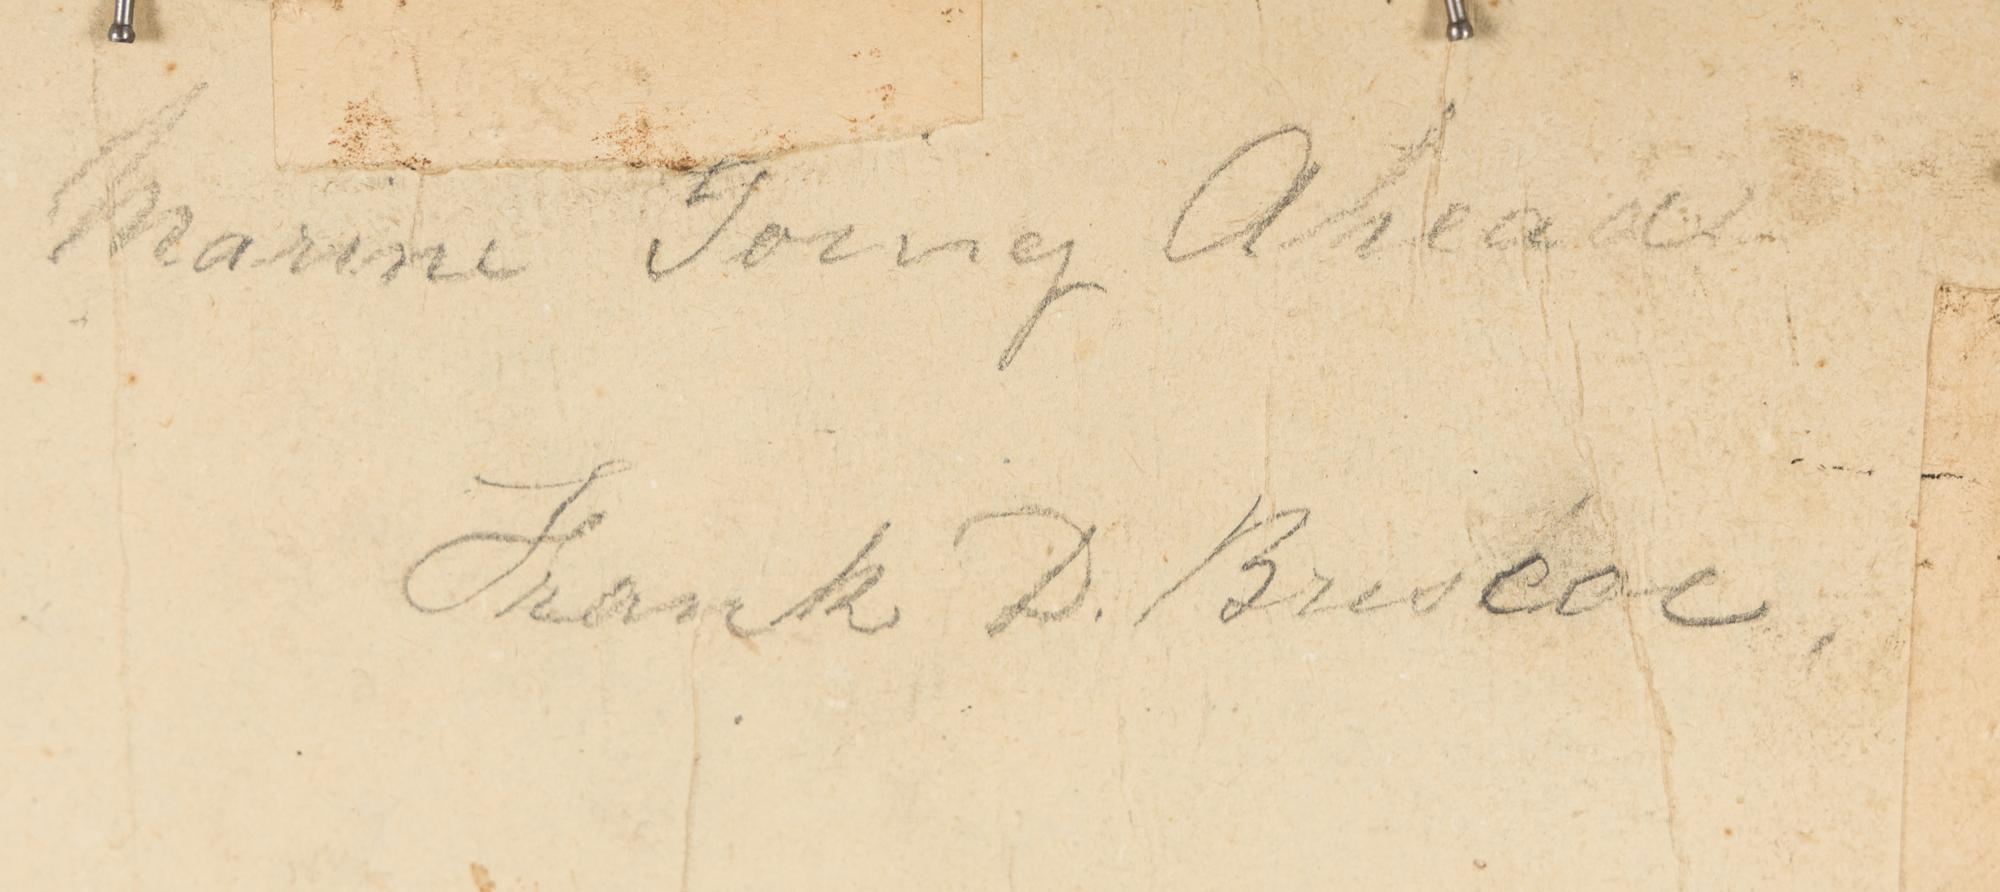 Marine Going Ahead
Frank D. Briscoe,